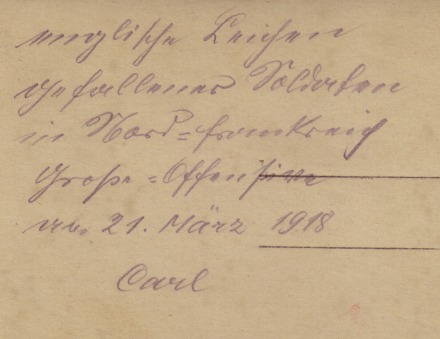 englische Leichen
gefallener Soldaten
in Nord=frankreich
Große=Offensive
21. März 1918
Carl